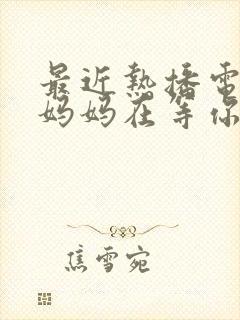 最近熱播電
媽媽在等你
焦雪宛